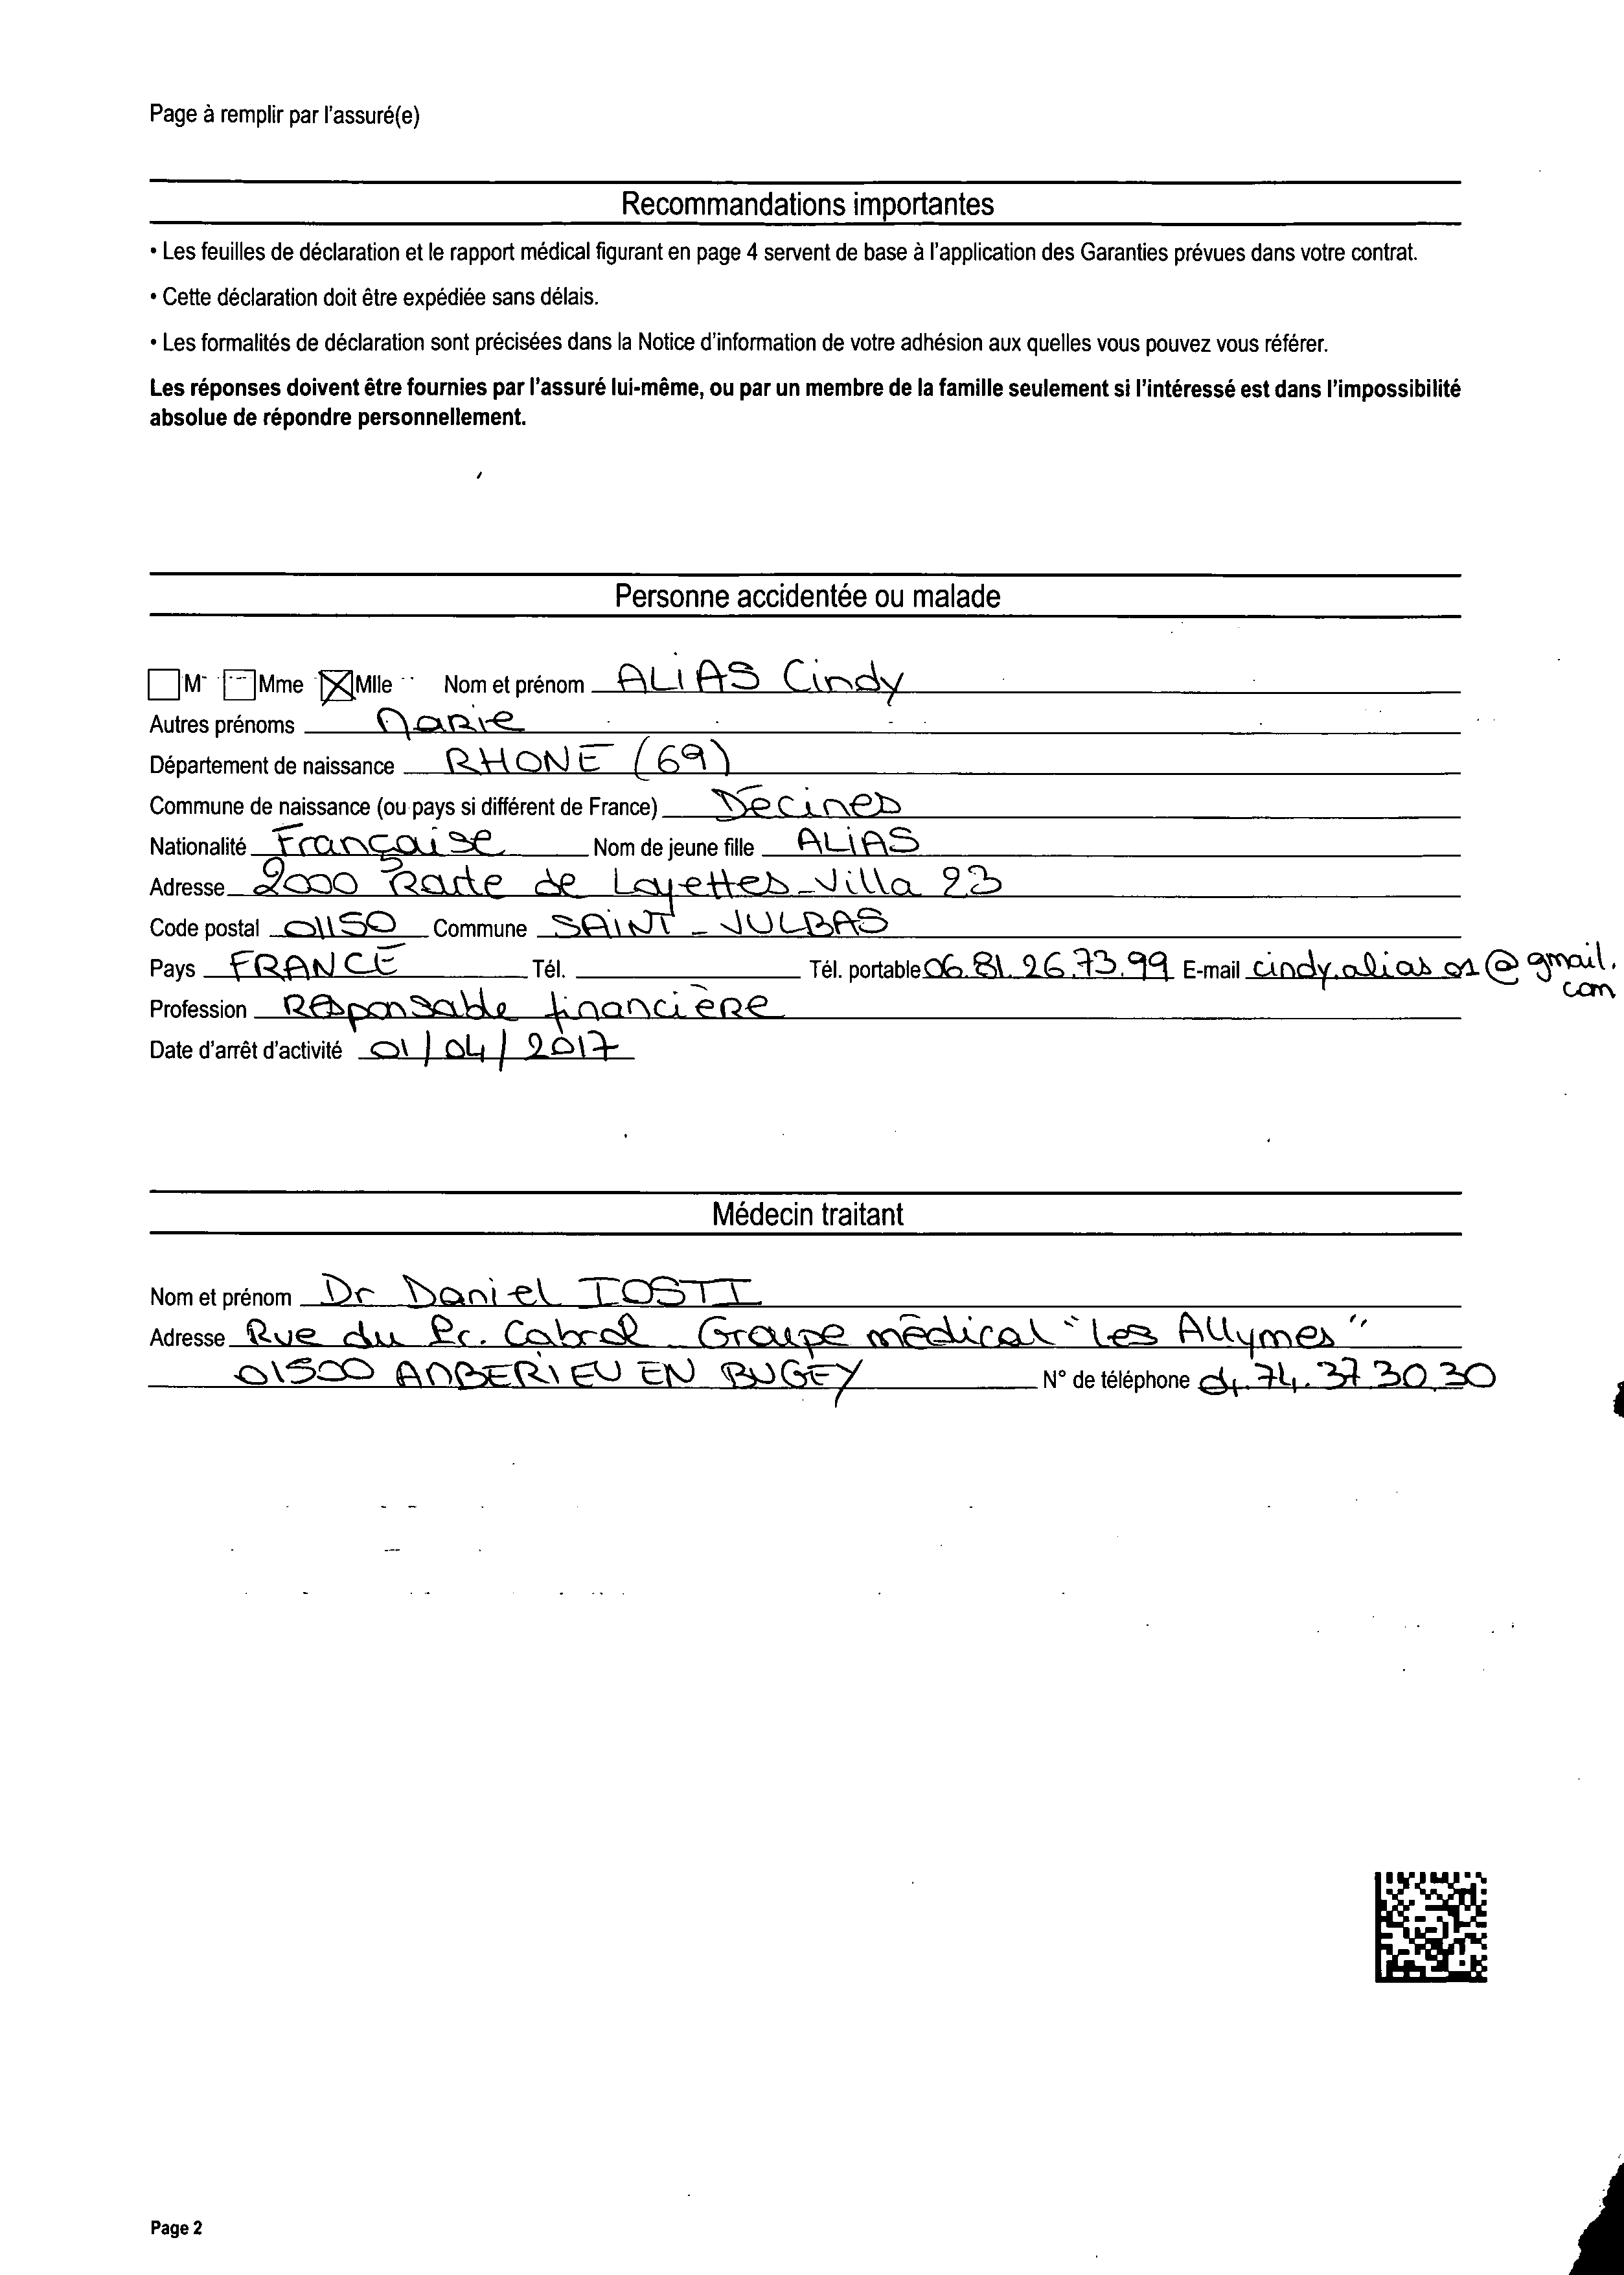 Page à remplir par l'assuré(e)
Recommandations importantes
• Les feuilles de déclaration et le rapport médical figurant en page 4 servent de base à l'application des Garanties prévues dans votre contrat.
• Cette déclaration doit être expédiée sans délais.
• Les formalités de déclaration sont précisées dans la Notice d'information de votre adhésion aux quelles vous pouvez vous référer.
Les réponses doivent être fournies par l'assuré lui-même, ou par un membre de la famille seulement si l'intéressé est dans l'impossibilité
absolue de répondre personnellement.
Personne accidentée ou malade
M Mme Mlle Nom et prénom ALIAS Cindy
Autres prénoms Marie
Département de naissance RHONE (69)
Commune de naissance (ou pays si différent de France) Décines
Nationalité Française Nom de jeune fille ALIAS
Adresse 2000 Route de Loyettes - Villa 23
Code postal 01150 Commune SAINT - VULBAS
Pays FRANCE Tél. Tél. portable 06.81.26.73.99 E-mail cindy.alias01@gmail.
com
Profession Responsable financière
Date d'arrêt d'activité 01/04/2017
Médecin traitant
Nom et prénom Dr Daniel IOSTI
Adresse Rue du Pr. Cabrol - Groupe médical "Les Allymes"
01500 AMBERIEU EN BUGEY N° de téléphone 04.74.37.30.30
Page 2